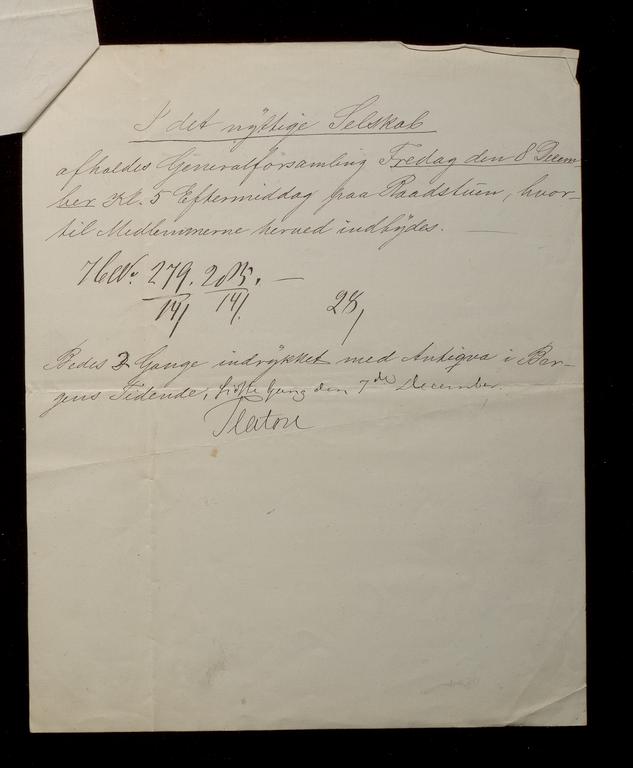 I det nyttige Selskab
afholdes Generalforsamling Fredag den 8 Decem-
ber Kl. 5 Eftermiddag paa Raadstuen, hvor-
til Medlemmerne herved indbydes. —
279.
14/ 14/
28/
Bedes 2 Gange indrykket med Antiqva i Ber-
gens Tidende, sidste Gang den 7de December.
Platou